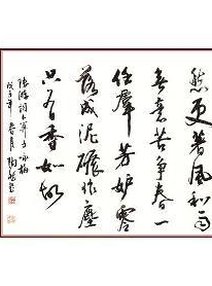 更著風和雨
無意苦争春一
任群芳妒零
落成泥碾作塵
只有香如故
陸游詞卜算子咏梅
戊子年春月